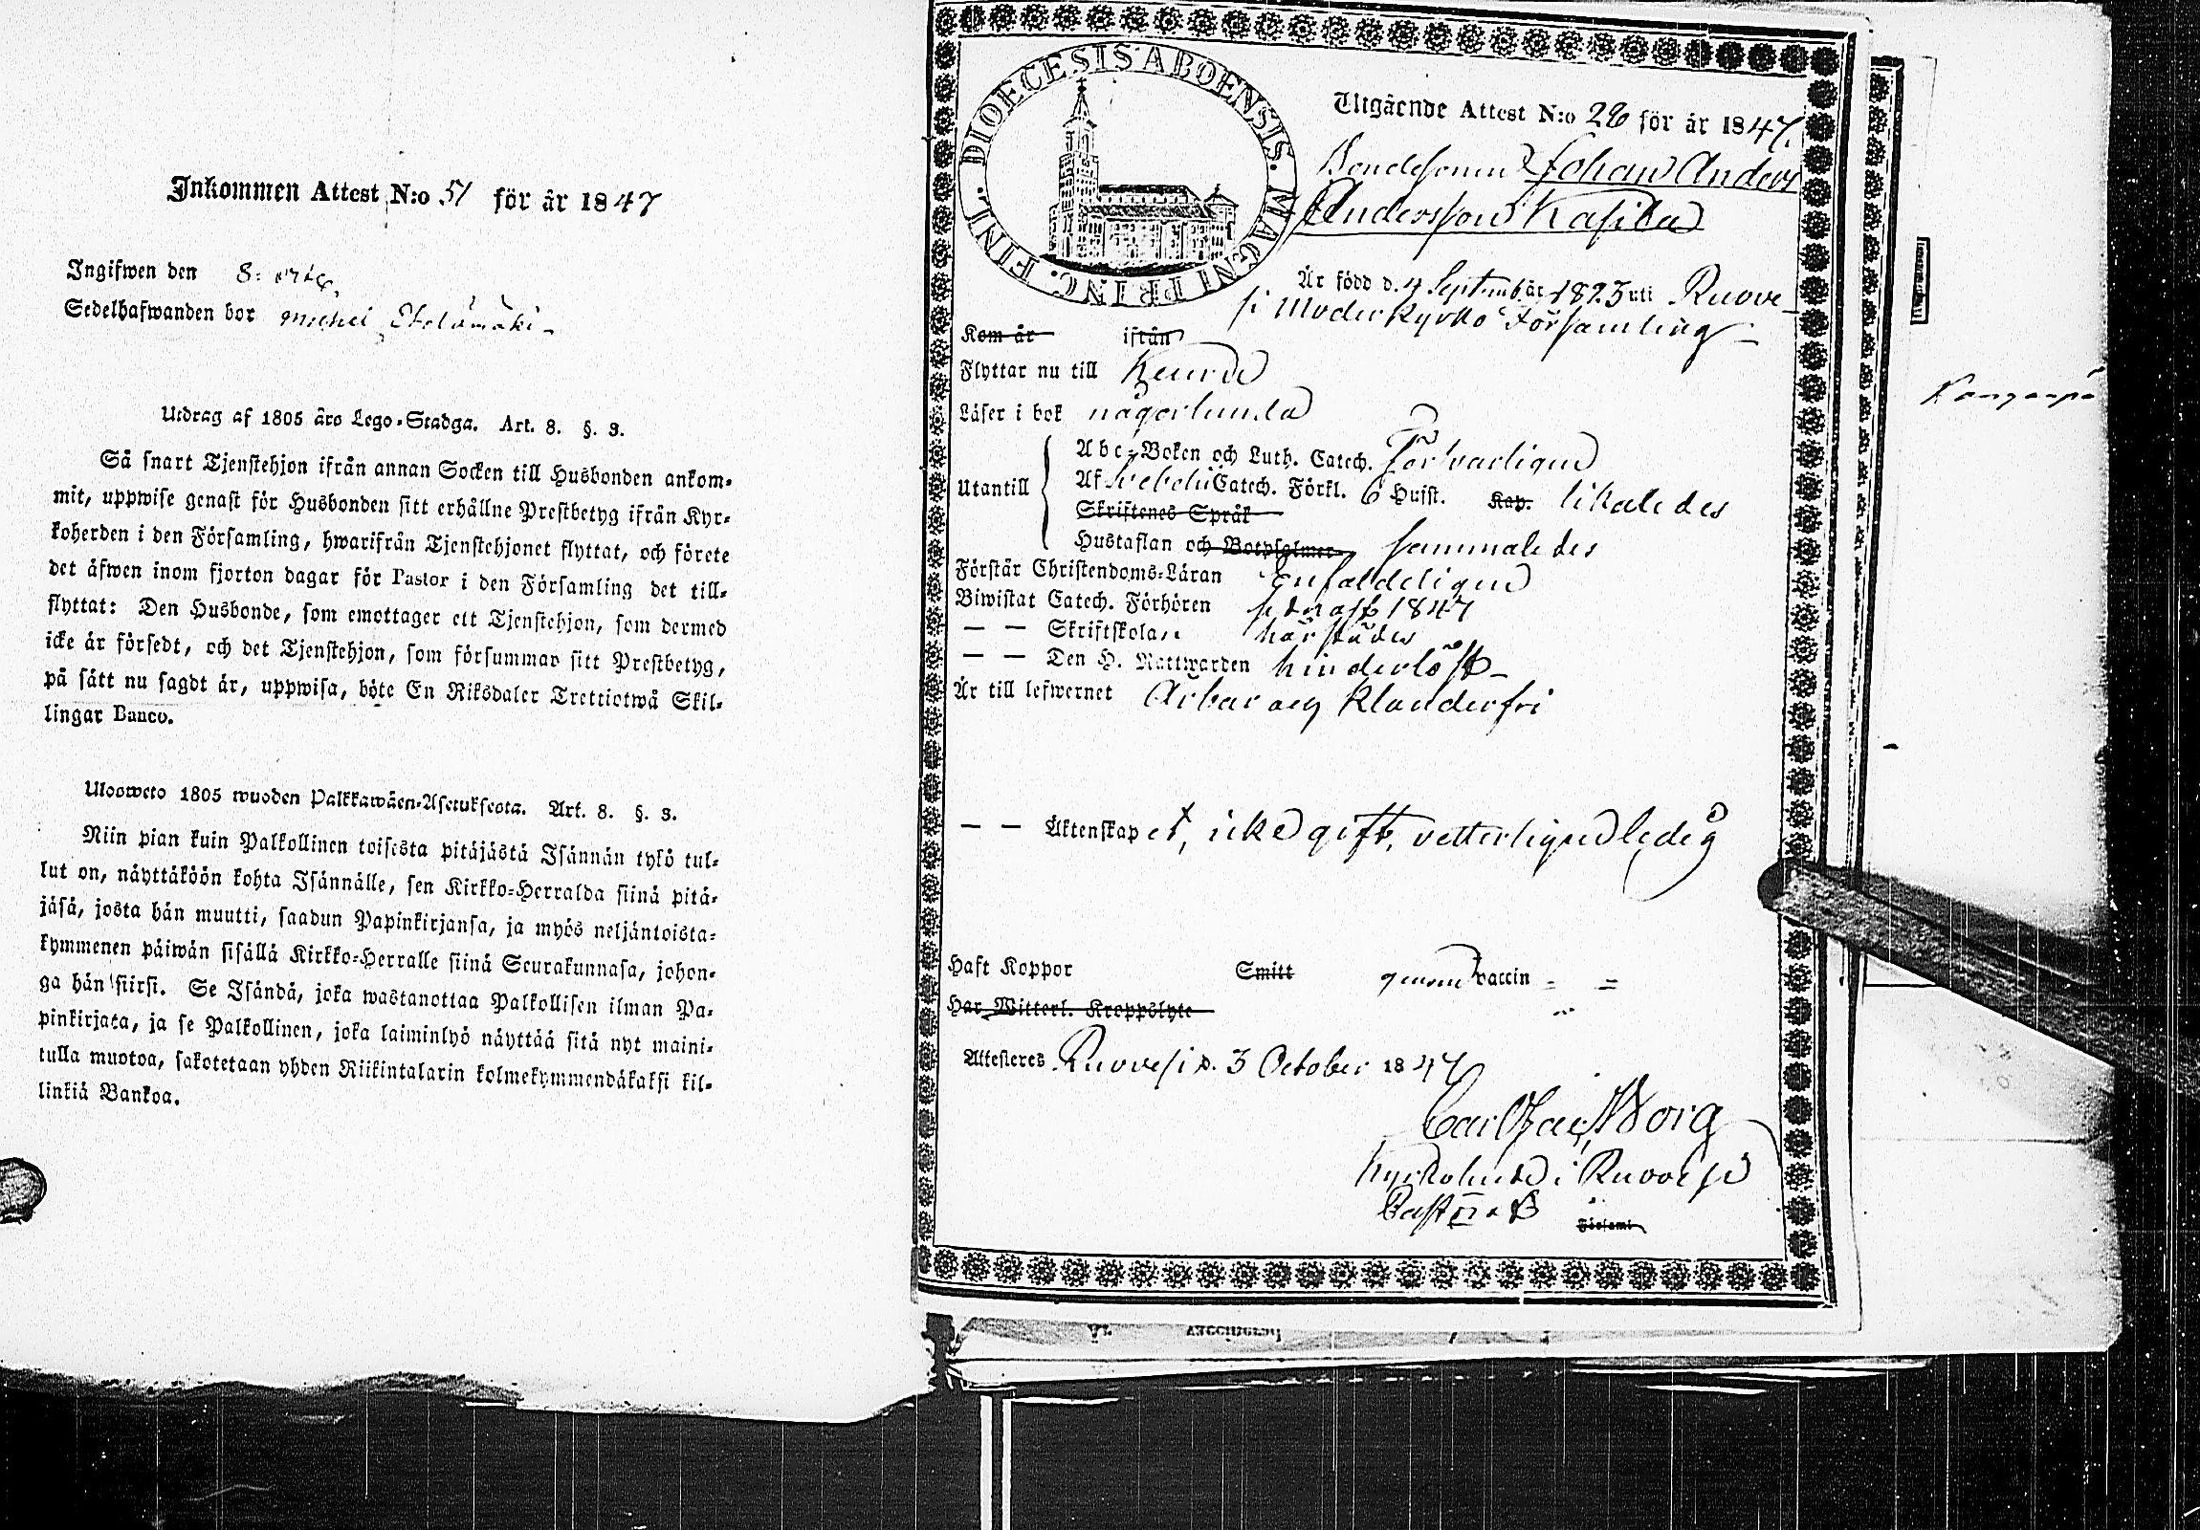 Inkommen Attest N:o 51 för år 1847
Ingifwen den 8:
Sedelhafwanden bor Etelämäki
Utdrag af 1805 års Lego-Stadga. Art. 8. §. 3.
Så snart Tjenstehjon ifrån annan Socken till Husbonden ankom-
mit, uppwise genast för Husbonden sitt erhållne Prestbetyg ifrån Kyr-
koherden i den Församling, hwarifrån Tjenstehjonet flyttat, och förete
det äfwen inom fjorton dagar för Pastor i den Församling det till-
flyttat: Den Husbonde, som emottager ett Tjenstehjon, som dermed
icke är försedt, och det Tjenstehjon, som försummar sitt Prestbetyg,
på sätt nu sagdt är, uppwisa, böte En Riksdaler Trettiotwå Skil-
lingar Banco.
Ulosweto 1805 wuoden Palkkawäen-Asetuksesta. Art. 8. §. 3.
Niin pian kuin Palkollinen toisesta pitäjästä Isännän tykö tul-
lut on, näyttäköön kohta Isännälle, sen Kirkko-Herralda siinä pitä-
jäsä, josta hän muutti, saadun Papinkirjansa, ja myös neljäntoista-
kymmenen päiwän sisällä Kirkko-Herralle siinä Seurakunnasa, johon-
ga hän siirsi. Se Isändä, joka wastanottaa Palkollisen ilman Pa-
pinkirjata, ja se Palkollinen, joka laiminlyö näyttää sitä nyt maini-
tulla muotoa, sakotetaan yhden Riikintalarin kolmekymmendäkaksi kil-
linkiä Bankoa.
DIOECESIS ABOENSIS. MAGNI PRINC. FINL.
Utgående Attest N:o 28 för år 1847.
Bondesonen Johan Anders
Andersson Kasila
Är född d. 4 September år 1823 uti Ruove-
si Moderkyrko Församling
Kom år ifrån
Flyttar nu till Keuru
Läser i bok någorlunda
Utantill
Abc-Boken och Luth. Catech. Försvarligen
Af Svebelii Catech. Förkl. 6 Hufst. Kap. likaledes
Skriftenes Språk
Hustaflan och Botpsalmer sammaledes
Förstår Christendoms-Läran Enfaldeligen
Biwistat Catech. Förhören sednast 1847
— — Skriftskolan härstädes
— — Den H. Nattwarden hinderlöst
Är till lefwernet Ärbar och klanderfri
— — Äktenskapet, icke gift, vetterligen ledig
Haft Koppor Smitt genom vaccin
Har Witterl. Kroppslyte
Attesteres Ruovesi d. 3 October 1847
Carl Borg
Kyrkoherde i Ruovesi
Församl
Kangaspä